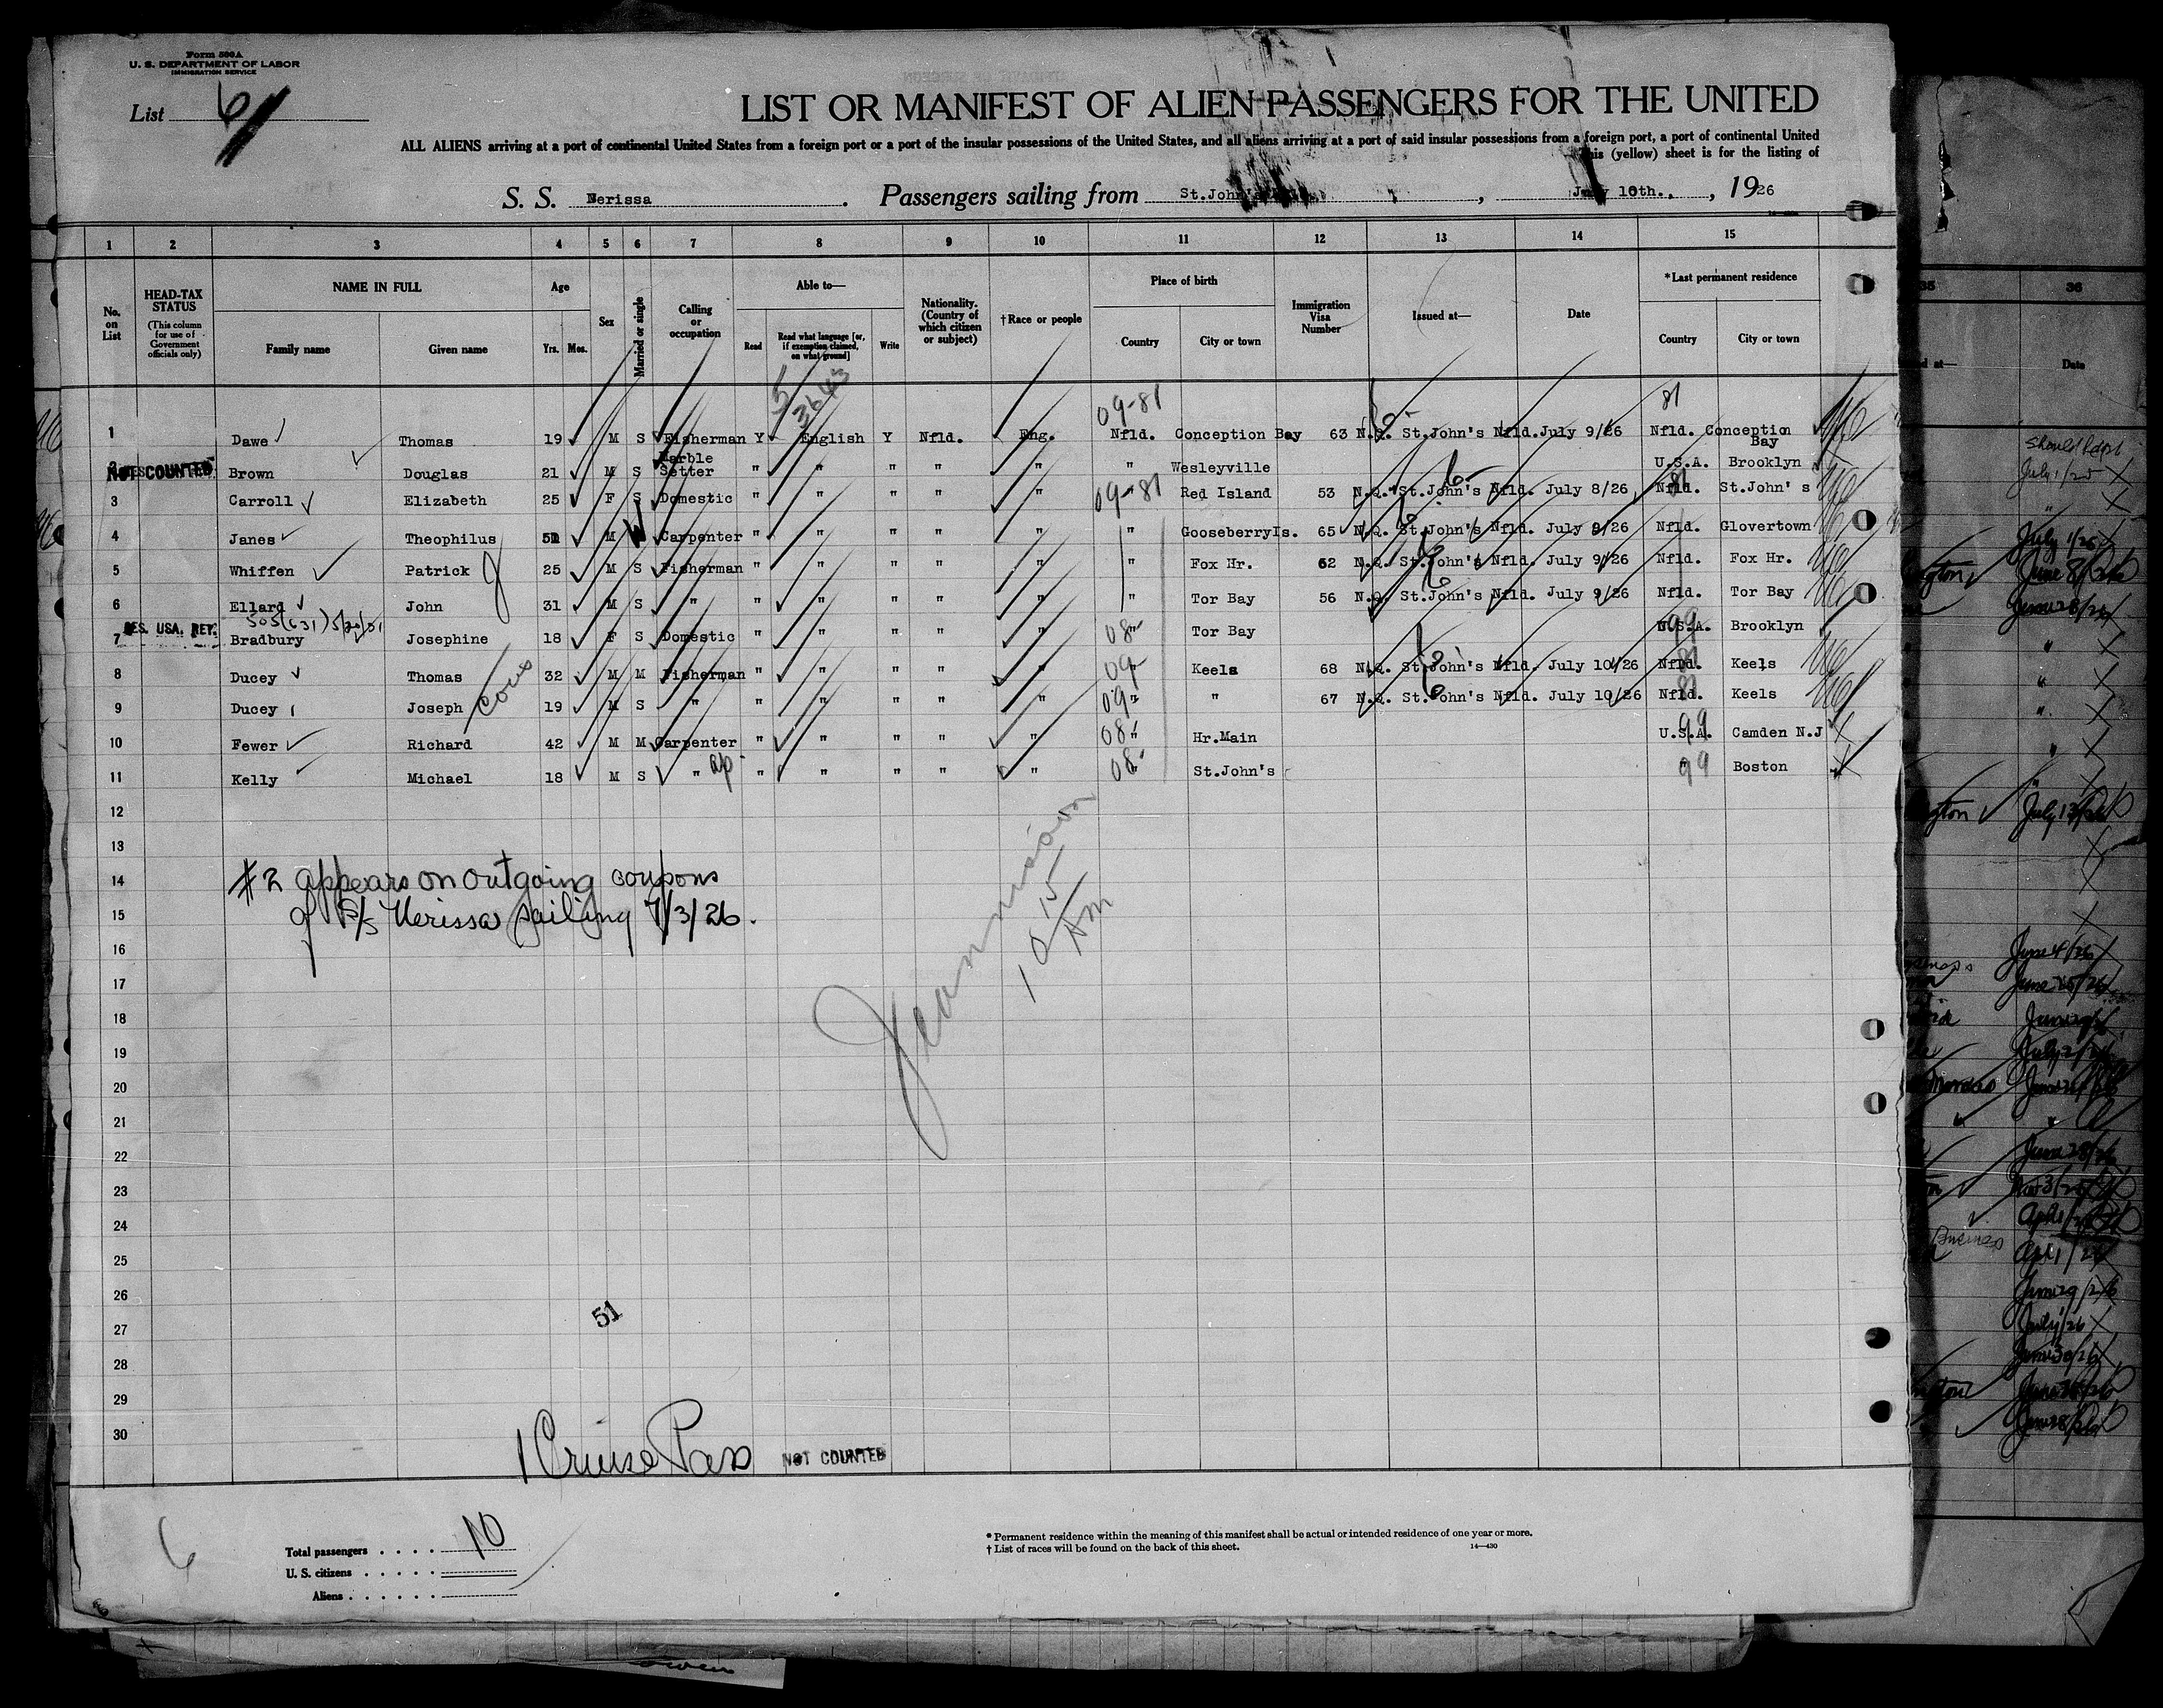 Form 500A
U. S. DEPARTMENT OF LABOR
IMMIGRATION SERVICE
List 6
LIST OR MANIFEST OF ALIEN PASSENGERS FOR THE UNITED
ALL ALIENS arriving at a port of continental United States from a foreign port or a port of the insular possessions of the United States, and all aliens arriving at a port of said insular possessions from a foreign port, a port of continental United
This (yellow) sheet is for the listing of
S. S. Nerissa . Passengers sailing from St.John's , July 10th., , 1926
1 2 3 4 5 6 7 8 9 10 11 12 13 14 15
No. on List
HEAD-TAX STATUS
(This column for use of Government officials only)
NAME IN FULL
Family name Given name
Age
Yrs. Mos.
Sex
Married or single
Calling or occupation
Able to—
Read Read what language [or, if exemption claimed, on what ground] Write
Nationality. (Country of which citizen or subject)
†Race or people
Place of birth
Country City or town
Immigration Visa Number
Issued at—
Date
*Last permanent residence
Country City or town
5 3643 09-81 81
1 Dawe Thomas 19 M S Fisherman Y English Y Nfld. Eng. Nfld. Conception Bay 63 N.Q. St.John's Nfld. July 9/26 Nfld. Conception Bay
NOT COUNTED
2 Brown Douglas 21 M S Marble Setter " " " " " " Wesleyville U.S.A. Brooklyn
3 Carroll Elizabeth 25 F S Domestic " " " " " 09-81 " Red Island 53 N.Q. St.John's Nfld. July 8/26 81 Nfld. St.John's
4 Janes Theophilus 51 M W Carpenter " " " " " " GooseberryIs. 65 N.Q. St.John's Nfld. July 9/26 Nfld. Glovertown
5 Whiffen Patrick 25 M S Fisherman " " " " " " Fox Hr. 62 N.Q. St.John's Nfld. July 9/26 Nfld. Fox Hr.
6 Ellard John 31 M S " " " " " " " Tor Bay 56 N.Q. St.John's Nfld. July 9/26 Nfld. Tor Bay
RES. USA. RET.
7 Bradbury Josephine 18 F S Domestic " " " " " 08 " Tor Bay 99 U.S.A. Brooklyn
8 Ducey Thomas 32 M M Fisherman " " " " " 09 " Keels 68 N.Q. St.John's Nfld. July 10/26 81 Nfld. Keels
9 Ducey Joseph 19 M S " " " " " " 09 " " 67 N.Q. St.John's Nfld. July 10/26 81 Nfld. Keels
cous
10 Fewer Richard 42 M M Carpenter " " " " " 08 " Hr.Main 99 U.S.A. Camden N.J
11 Kelly Michael 18 M S " ap " " " " " 08 " St.John's 99 " Boston
12
13
14 #2 appears on outgoing coupons
15 of S/S Nerissa sailing 7/3/26.
16
17
18
19
20
21
22
23
24
25
26
27
28
29
30
10 15 Am
51
1 Cruise Pass NOT COUNTED
6
Total passengers . . . . . 10
U. S. citizens . . . . .
Aliens . . . . . .
* Permanent residence within the meaning of this manifest shall be actual or intended residence of one year or more.
† List of races will be found on the back of this sheet. 14—430
35 36
Date
July 1/25
June 8/26
June 28/26
July 13/26
June 4/26
June 28/26
Nov 3/25
June 29/26
July 1/26
June 30/26